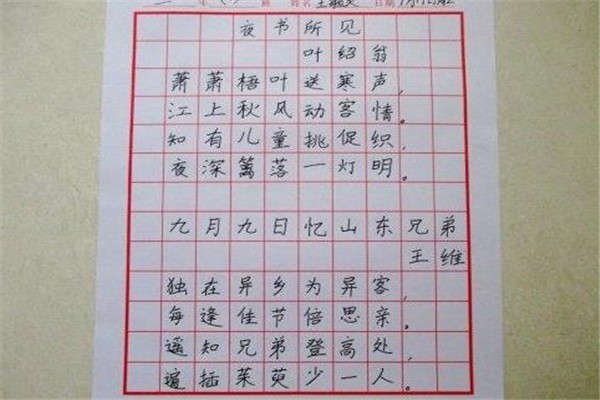 年 姓名 王 日期
夜书所见
叶绍翁
萧萧梧叶送寒声，
江上秋风动客情。
知有儿童挑促织，
夜深篱落一灯明。
九月九日忆山东兄弟
王维
独在异乡为异客，
每逢佳节倍思亲。
遥知兄弟登高处，
遍插茱萸少一人。